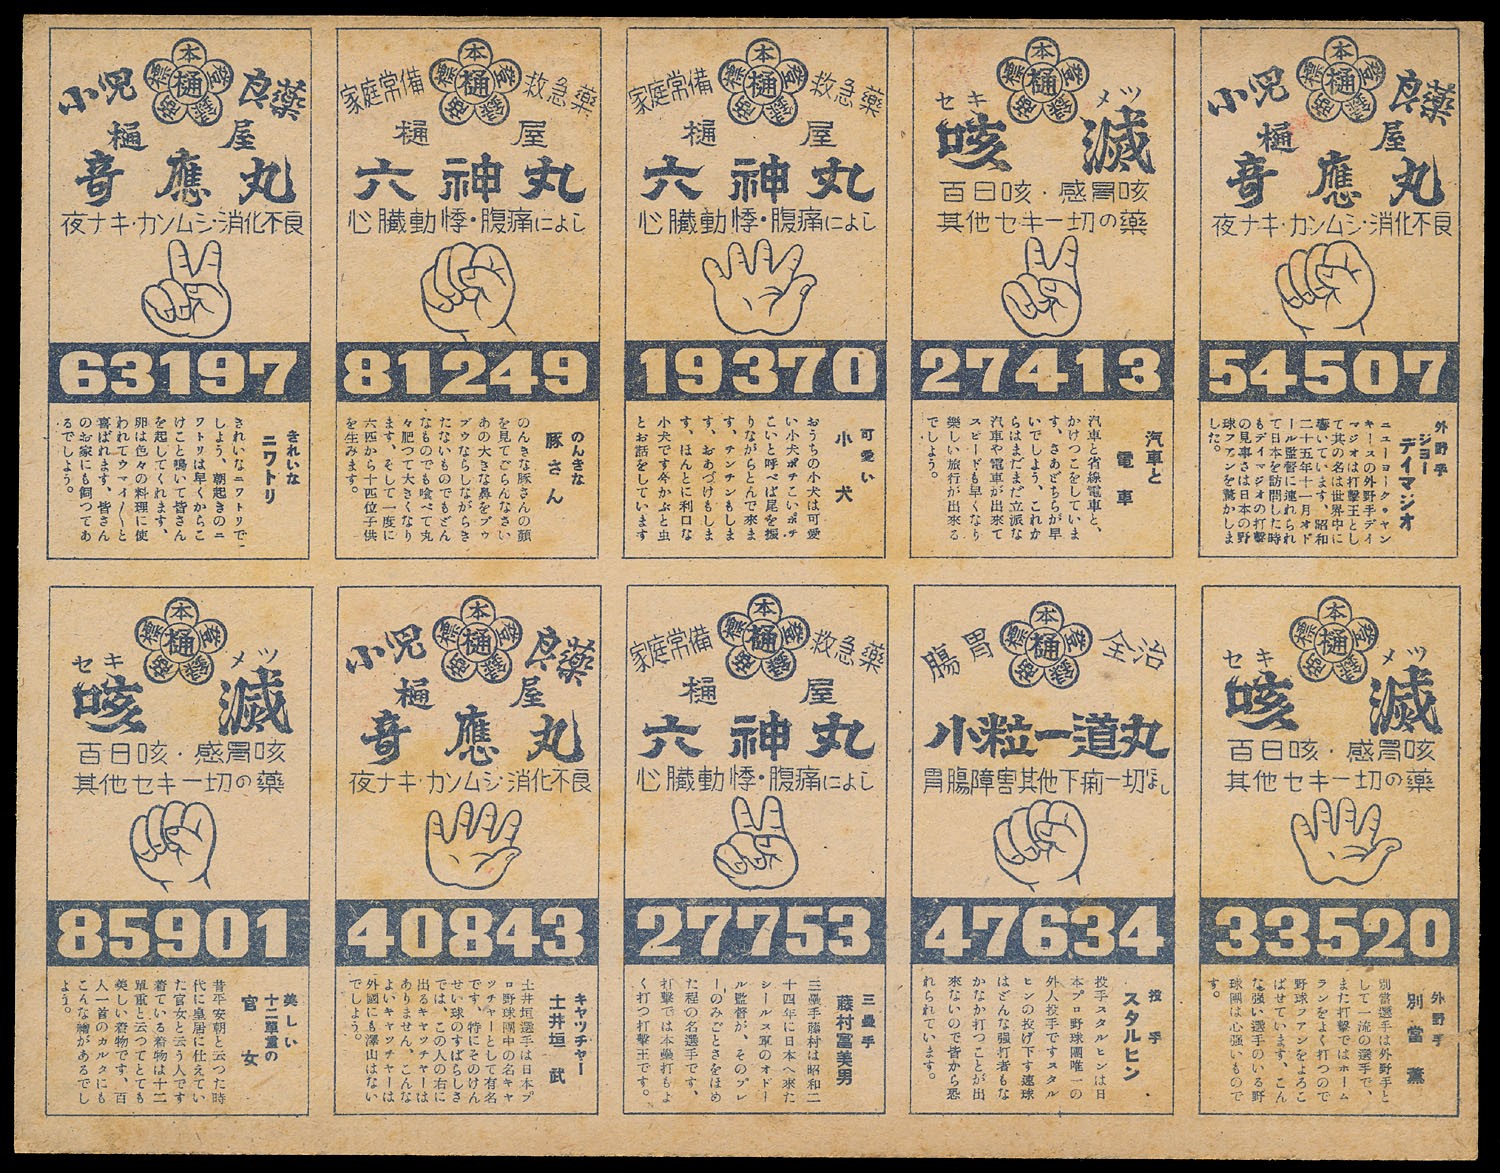 本
標 樋 登
小児 良薬
樋屋
奇應丸
夜ナキ・カンムシ・消化不良
63197
きれいな
ニワトリ
きれいなニワトリで
しよう、朝起きのニ
ワトリは早くからこ
けこと鳴いて皆さん
を起してくれます、
卵は色々の料理に使
われてウマイ〱と
喜ばれます、皆さん
のお家にも飼つてあ
るでしよう。
本
標 樋 登
家庭常備 救急薬
樋屋
六神丸
心臓動悸・腹痛によし
81249
のんきな
豚さん
のんきな豚さんの顔
を見てごらんなさい
あの大きな鼻をブゥ
ブウならしながらき
たないものでもどん
なものでも喰べて丸
々肥つて大きくなり
ます、そして一度に
六匹から十匹位子供
を生みます。
本
標 樋 登
家庭常備 救急薬
樋屋
六神丸
心臓動悸・腹痛によし
19370
可愛い
小犬
おうちの小犬は可愛
い小犬ポチこいポチ
こいと呼べば尾を振
りながらとんで來ま
す、チンチンもしま
す、おあづけもしま
す、ほんとに利口な
小犬です今かぶと虫
とお話をしています
本
標 樋 登
セキ メツ
咳滅
百日咳・感冒咳
其他セキ一切の薬
27413
汽車と
電車
汽車と省線電車と、
かけつこをしていま
す、さあどちらが早
いでしよう、これか
らはまだまだ立派な
汽車や電車が出來て
スピードも早くなり
樂しい旅行が出來る
でしよう。
本
標 樋 登
小児 良薬
樋屋
奇應丸
夜ナキ・カンムシ・消化不良
54507
外野手
ジョー
デイマジオ
ニューヨーク・ヤン
キースの外野手デイ
マジオは打撃王とし
て其の名は世界中に
響いています、昭和
二十五年十一月オド
ール監督に連れられ
て日本を訪問した時
もデイマジオの打撃
の見事さは日本の野
球フアンを驚かしま
した。
本
標 樋 登
セキ メツ
咳滅
百日咳・感冒咳
其他セキ一切の薬
85901
美しい
十二單重の
官女
昔平安朝と云つた時
代に皇居に仕えてい
た官女と云う人です
着ている着物は十二
單重と云つてとても
美しい着物です、百
人一首のカルタにも
こんな繪があるでし
よう。
本
標 樋 登
小児 良薬
樋屋
奇應丸
夜ナキ・カンムシ・消化不良
40843
キャッチャー
土井垣 武
土井垣選手は日本プ
ロ野球團中の名キャ
ツチャーとして有名
です、特にそのけん
せい球のすばらしさ
では、この人の右に
出るキャッチャーは
ありません、こんな
よいキャッチャーは
外國にも澤山はない
でしよう。
本
標 樋 登
家庭常備 救急薬
樋屋
六神丸
心臓動悸・腹痛によし
27753
三壘手
藤村富美男
三壘手藤村は昭和二
十四年に日本へ來た
シールス軍のオドー
ル監督が、そのプレ
ーのみごとさをほめ
た程の名選手です、
打撃では本壘打もよ
く打つ打撃王です。
本
標 樋 登
腸胃 全治
小粒一道丸
胃腸障害其他下痢一切によし
47634
投手
スタルヒン
投手スタルヒンは日
本プロ野球團唯一の
外人投手ですスタル
ヒンの投げ下す速球
はどんな強打者もな
かなか打つことが出
來ないので皆から恐
れられています。
本
標 樋 登
セキ メツ
咳滅
百日咳・感冒咳
其他セキ一切の薬
33520
外野手
別當 薫
別當選手は外野手と
して一流の選手で、
また打撃ではホーム
ランをよく打つので
野球フアンをよろこ
ばせています、こん
な強い選手のいる野
球團は心強いもので
す。